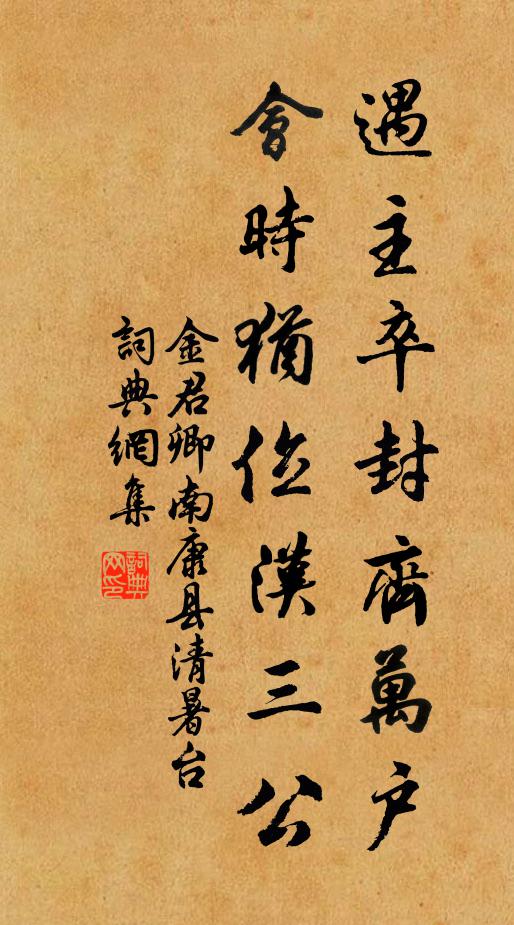 遇主卒封齊萬户
會時猶位漢三公
金君卿南康县清暑台
詞典網集
詞典網印